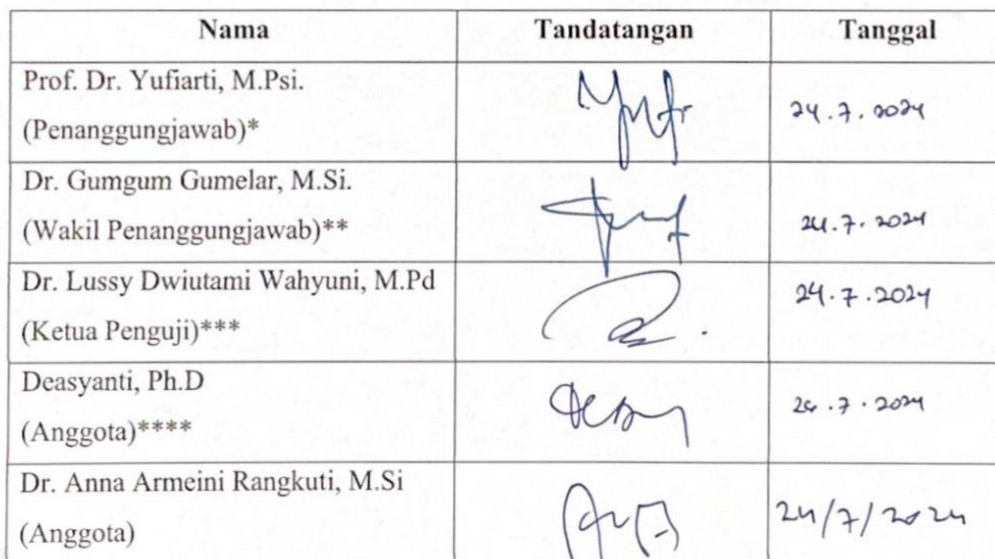 Nama Tandatangan Tanggal
Prof. Dr. Yufiarti, M.Psi.
(Penanggungjawab)* 24.7.2024
Dr. Gumgum Gumelar, M.Si.
(Wakil Penanggungjawab)** 24.7.2024
Dr. Lussy Dwiutami Wahyuni, M.Pd 24.7.2024
(Ketua Penguji)***
Deasyanti, Ph.D 24.7.2024
(Anggota)****
Dr. Anna Armeini Rangkuti, M.Si 24/7/2024
(Anggota)